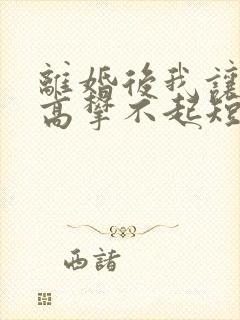 離婚後我讓
高攀不起短
西諸